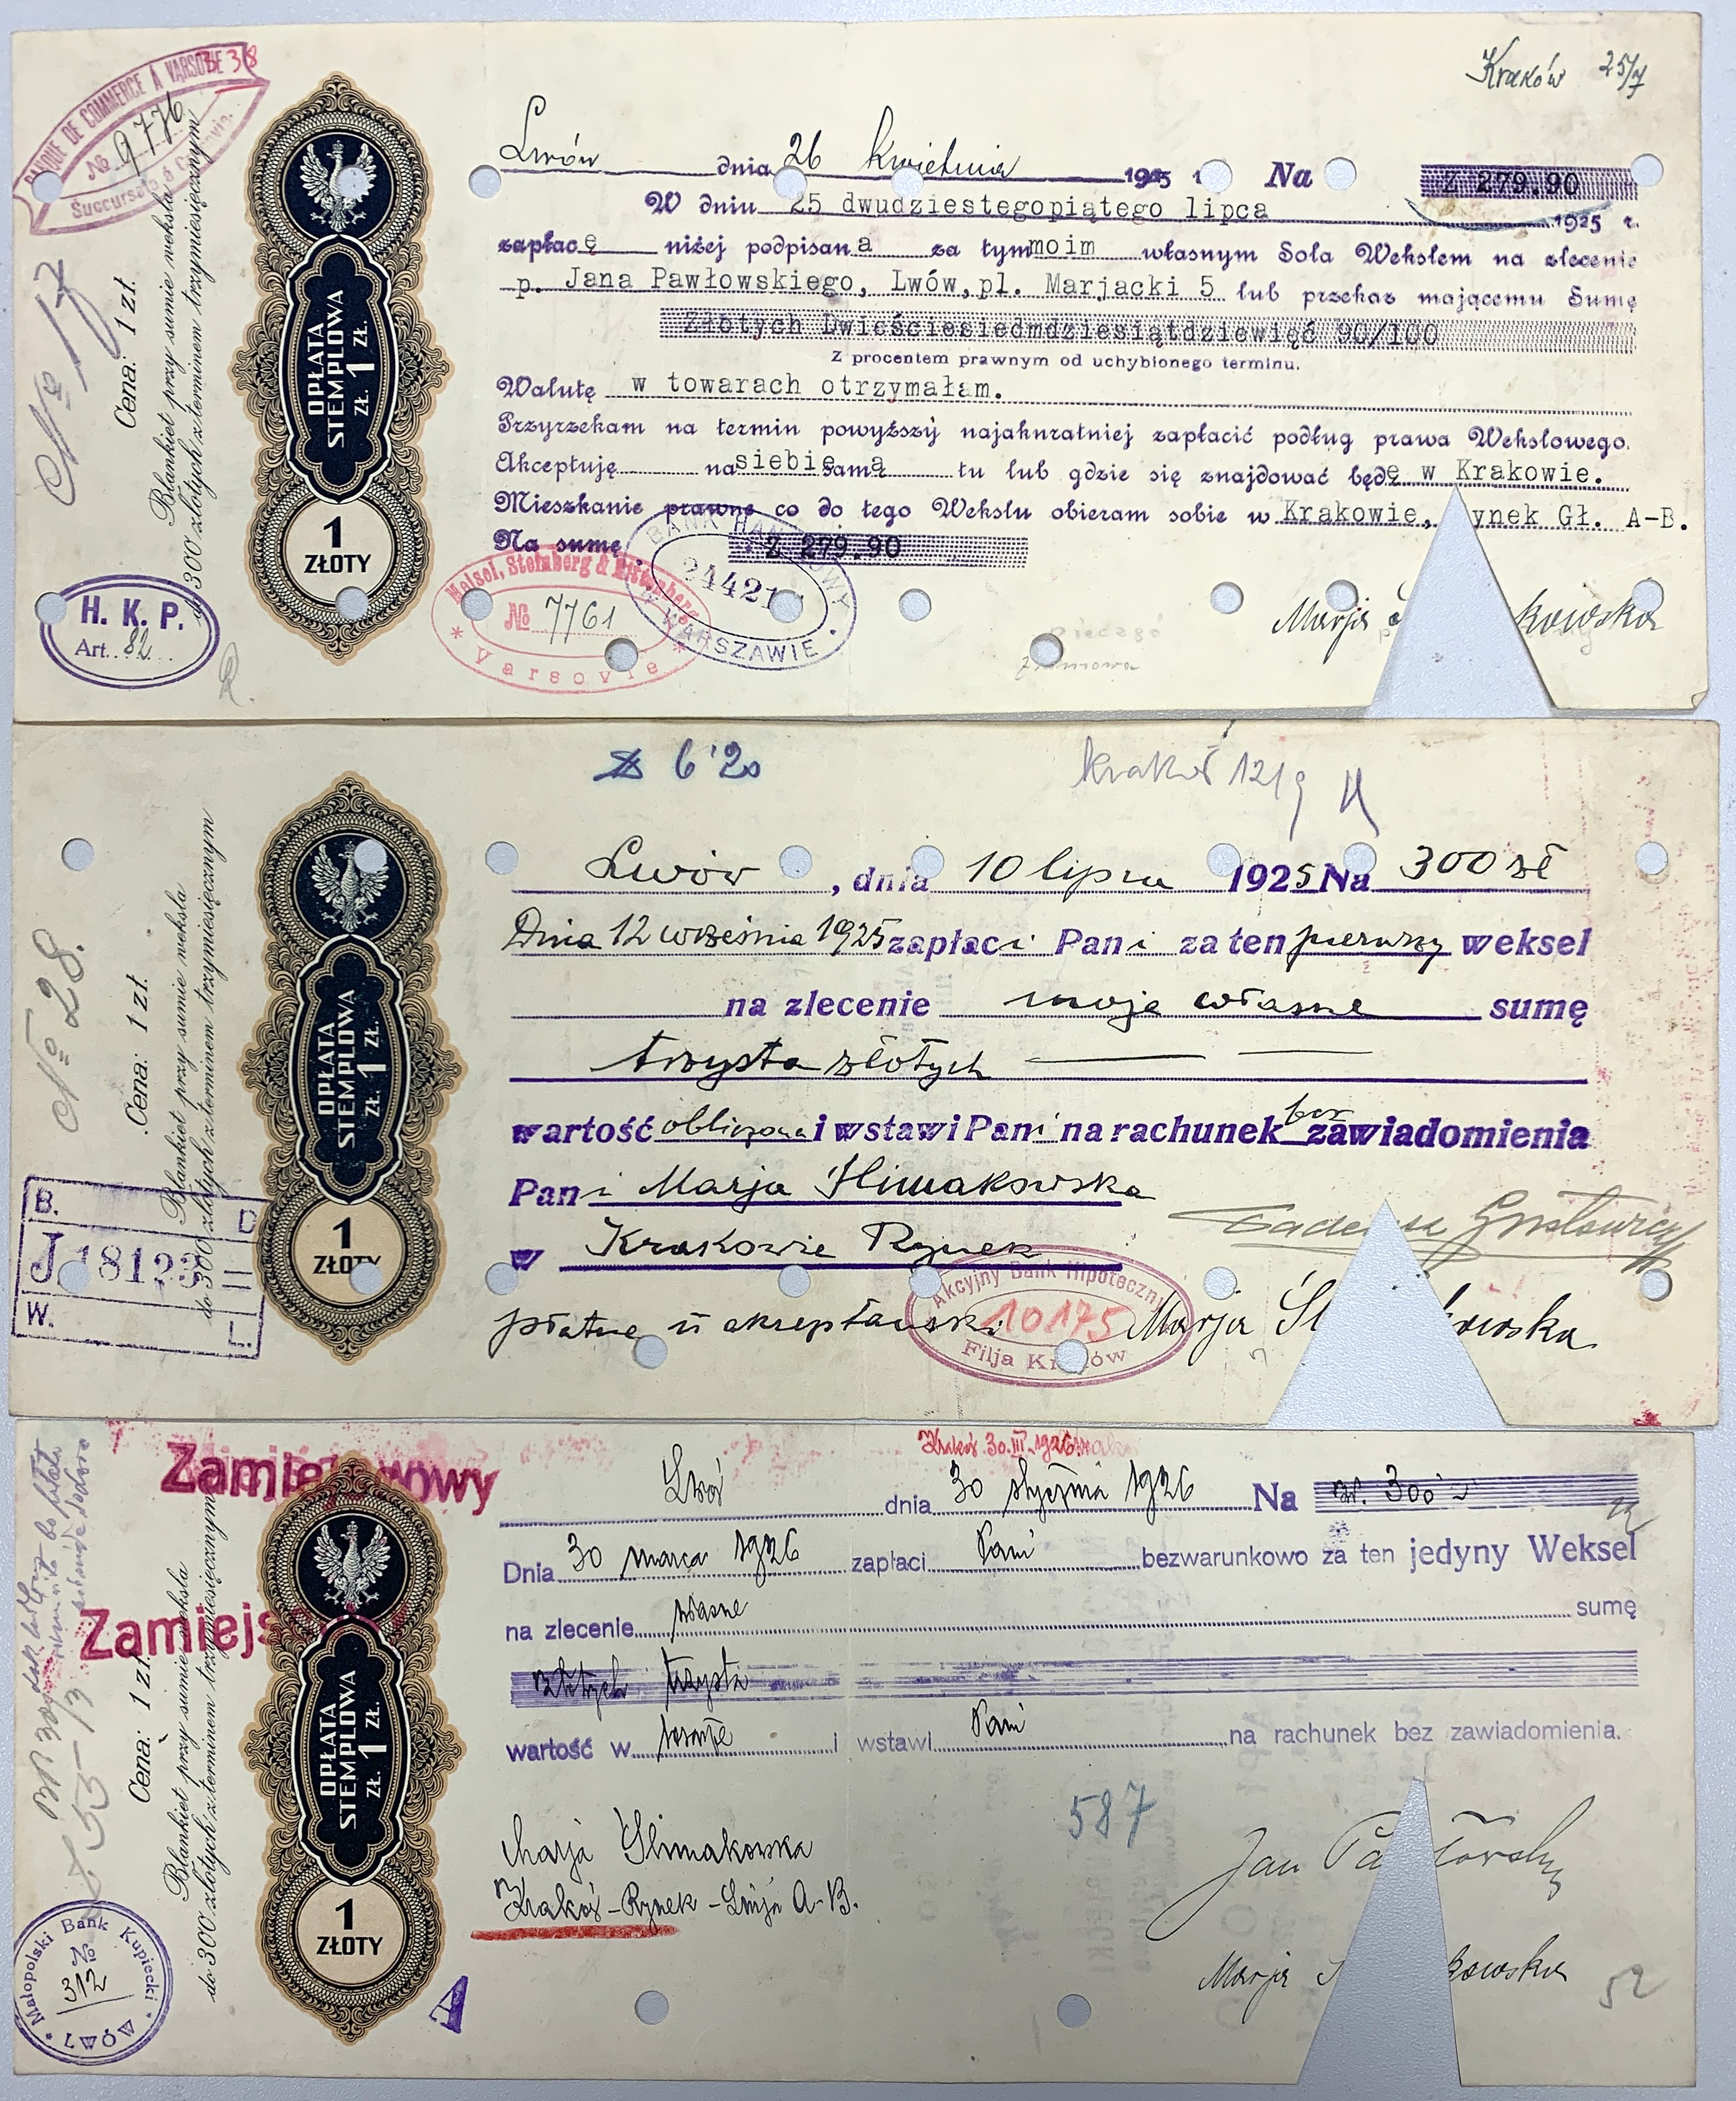 BANQUE DE COMMERCE À VARSOVIE
38
№ 9776
Succursale à Cracovie
Kraków 25/7
Lwów dnia 26 kwietnia 1925 r. Na Z 279.90
W dniu 25 dwudziestegopiątego lipca 1925 r.
zapłacę niżej podpisana za tym moim własnym Sola Wekslem na zlecenie
p. Jana Pawłowskiego, Lwów, pl. Marjacki 5 lub przekaz mającemu Sumę
Złotych Dwieściesiedmdziesiątdziewięć 90/100
Z procentem prawnym od uchybionego terminu.
Walutę w towarach otrzymałam.
Przyrzekam na termin powyższy najakuratniej zapłacić podług prawa Wekslowego.
Akceptuję na siebie samą tu lub gdzie się znajdować będę w Krakowie.
Mieszkanie prawne co do tego Wekslu obieram sobie w Krakowie, ynek Gł. A-B.
Na sumę Z 279.90
BANK HANDLOWY W WARSZAWIE
24421
№ 7761
Varsovie
Marja kowska
№ 17
Cena: 1 zł.
Blankiet przy sumie weksla
do 300 złotych z terminem trzymiesięcznym
OPŁATA
STEMPLOWA
ZŁ. 1 ZŁ.
1
ZŁOTY
H. K. P.
Art. 82
Z 6'20
Kraków 12/9
Lwów, dnia 10 lipca 1925 Na 300 zł
Dnia 12 września 1925 zapłaci Pani za ten pierwszy weksel
na zlecenie moje własne sumę
trzysta złotych
wartość obliczona i wstawi Pani na rachunek bez zawiadomienia
Pani Marja Slimakowska
w Krakowie Rynek
płatne u akceptantki
Akcyjny Bank Hipoteczny
10175
Filja Kraków
Tadeusz
Marja Śl kowska
№ 28.
Cena: 1 zł.
Blankiet przy sumie weksla
do 300 złotych z terminem trzymiesięcznym
OPŁATA
STEMPLOWA
ZŁ. 1 ZŁ.
1
ZŁOTY
B. D
J 18123
W. L.
Zamiejscowy
Zamiejs
Kraków 30.III.1926
Lwów dnia 30 stycznia 1926 Na zł. 300
Dnia 30 marca 1926 zapłaci Pani bezwarunkowo za ten jedyny Weksel
na zlecenie własne sumę
złotych trzysta
wartość w i wstawi Pani na rachunek bez zawiadomienia.
587
Marja Slimakowska
Kraków - Rynek - Linja A-B.
Jan Pa łowski
Marja S kowska
52
Cena: 1 zł.
Blankiet przy sumie weksla
do 300 złotych z terminem trzymiesięcznym
OPŁATA
STEMPLOWA
ZŁ. 1 ZŁ.
1
ZŁOTY
Małopolski Bank Kupiecki
№ 312
A